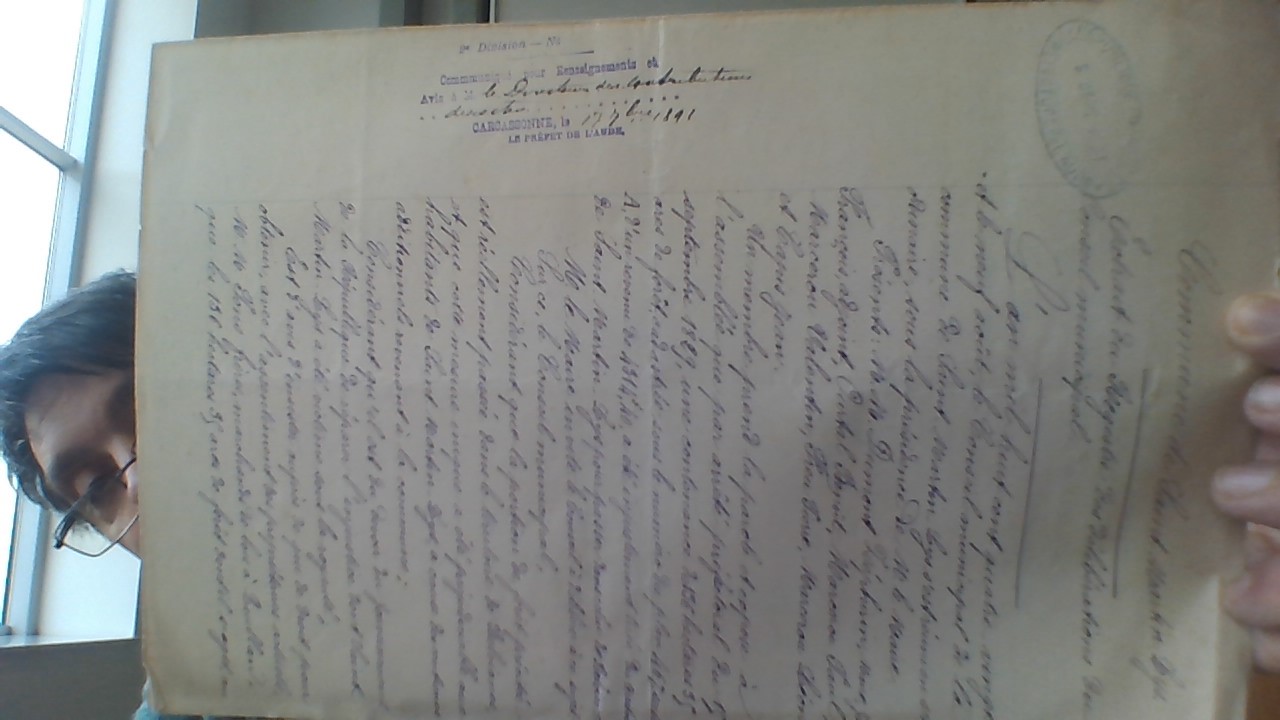 Commune de Saint Martin Lys
Extrait du Registre des délibérations du
Conseil municipal
L'an mil huit cent quatre vingt
et le neuf août, le Conseil municipal de la
commune de Saint Martin Lys s'est réuni en
ordinaire, sous la présidence de M. le Maire.
Présents: M. M. Dumont Zéphirin, maire,
François, adjoint, Curtal Benoît, Marcerou Paul,
Marcerou Valentin, Pierre, Marcerou Léon
et Capus Jean.
Un membre prend la parole et expose à
l'assemblée que par arrêté préfectoral du
septembre 1829, une contenance de 136 hectares 35
ares de forêt, cadastrée sous le numéro du plan 467
A, d'un revenu de 4314f,40, a été injustement
de Saint Martin Lys pour passer dans celui de
M. le Maire invite le Conseil à délibérer à ce sujet
Sur ce, le Conseil municipal,
Considérant que la portion de forêt précitée
est réellement passée dans le territoire de
et que cette mesure inique a été préjudiciable aux
habitants de Saint Martin Lys, à cause des centimes
additionnels revenant à la commune;
Considérant qu'il est du devoir du gouvernement
de la République de réparer l'injustice dont Saint
Martin Lys a été victime sous la royauté,
Est d'avis d'insister auprès de qui de droit pour
obtenir, avec l'assentiment des propriétaires actuels,
M. M. Pons frères, marchands de bois à Quillan,
que les 136 hectares 35 ares de forêt dont il s'agit
2e Division — No
Communiqué pour Renseignements et
Avis à M. le Directeur des Contributions
directes
CARCASSONNE, le 17 7bre 1891
LE PRÉFET DE L'AUDE,